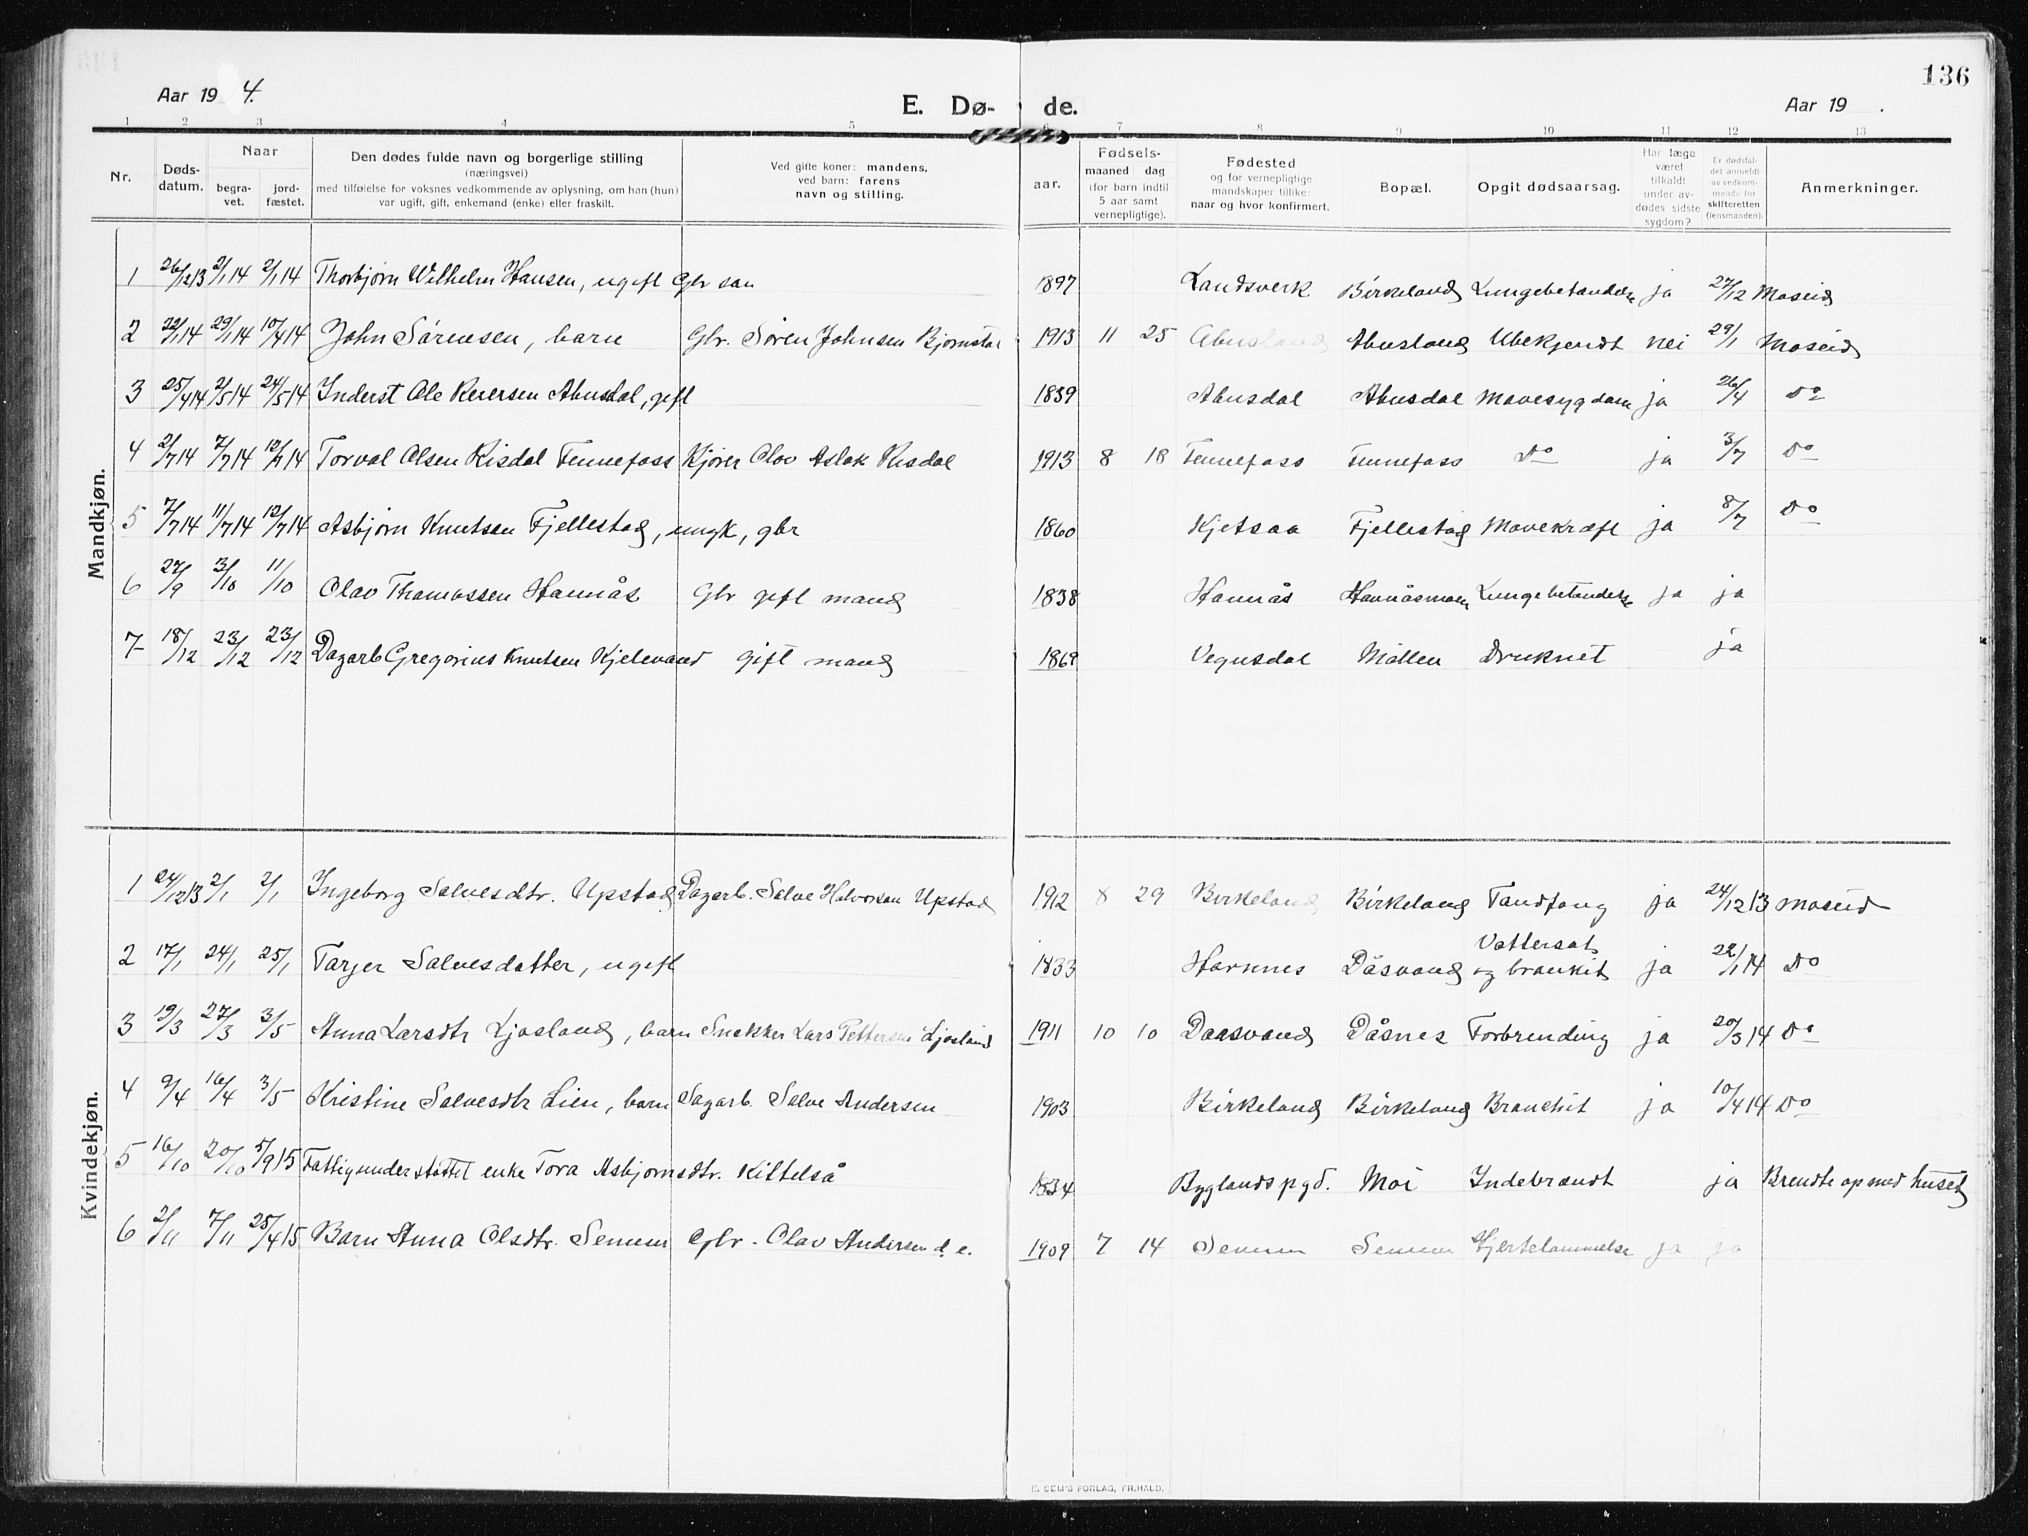 136
Aar 19 4. E. Dø- de. Aar 19 .
1 2 3 4 5 7 8 9 10 11 12 13
Nr. Døds-datum. Naar begra-vet. jord-fæstet. Den dødes fulde navn og borgerlige stilling (næringsvei) med tilføielse for voksnes vedkommende av oplysning, om han (hun) var ugift, gift, enkemand (enke) eller fraskilt. Ved gifte koner: mandens, ved barn: farens navn og stilling. aar. Fødsels- maaned dag (for barn indtil 5 aar samt vernepligtige). Fødested og for vernepligtige mandskaper tillike: naar og hvor konfirmert. Bopæl. Opgit dødsaarsag. Har læge været tilkaldt under av-dødes sidste sygdom? Er dødsfal-det anmeldt av vedkom-mende for skifteretten (lensmanden). Anmerkninger.
Mandkjøn.
1 26/12 13 2/1 14 2/1 14 Thorbjørn Wilhelm Hansen, ugift Gbr søn 1897 Landsverk Birkeland Lungebetændelse ja 27/12 Moseid
2 22/1 14 29/1 14 10/4 14 John Sørensen, barn Gbr. Søren Johnsen Bjørnstøl 1913 11 25 Abusland Abusland Ubekjendt nei 29/1 Moseid
3 25/4 14 2/5 14 24/5 14 Inderst Ole Reiersen Abusdal, gift 1839 Abusdal Abusdal Mavesygdom ja 26/4 Do
4 2/7 14 7/7 14 12/7 14 Torval Olsen Risdal Fennefoss Kjører Olav Aslak Risdal 1913 8 18 Fennefoss Fennefoss Do ja 3/7 Do
5 7/7 14 11/7 14 12/7 14 Asbjørn Knutsen Fjellestad, ungk, gbr 1860 Kjetsaa Fjellestad Mavekræft ja 8/7 Do
6 27/9 3/10 11/10 Olav Thomassen Hannås Gbr gift mand 1838 Hannås Hannåsmoen Lungebetændelse ja ja
7 18/12 23/12 23/12 Dagarb Gregorius Knutsen Kjelevand gift mand 1869 Vegusdal Mollen Druknet ja
Kvindekjøn.
1 24/12 13 2/1 2/1 Ingeborg Salvesdtr. Upstad Dagarb. Salve Halvorsen Upstad 1912 8 29 Birkeland Birkeland Tandfang ja 24/12 13 Moseid
2 17/1 24/1 25/1 Tarjer Salvesdatter, ugift 1833 Hornnes Dåsvand Vattersot og bronkit ja 22/1 14 Do
3 19/3 27/3 3/5 Anna Larsdtr Ljosland, barn Snekker Lars Pettersen Ljosland 1911 10 10 Daasvand Dåsnes Forbrending ja 20/3 14 Do
4 9/4 16/4 3/5 Kristine Salvesdtr Lien, barn Sagarb. Salve Andersen 1903 Birkeland Birkeland Bronchit ja 10/4 14 Do
5 16/10 20/10 5/9 15 Fattigunderstøttet enke Tora Asbjørnsdtr. Kittelså 1834 Byglands pgd. Moi Indebrændt ja Brendte op med huset
6 2/11 7/11 25/4 15 Barn Anna Olsdtr. Senum Gbr. Olav Andersen d. e. 1909 7 14 Senum Senum Hjertelammelse ja ja
E. SEM'S FORLAG, FR.HALD.